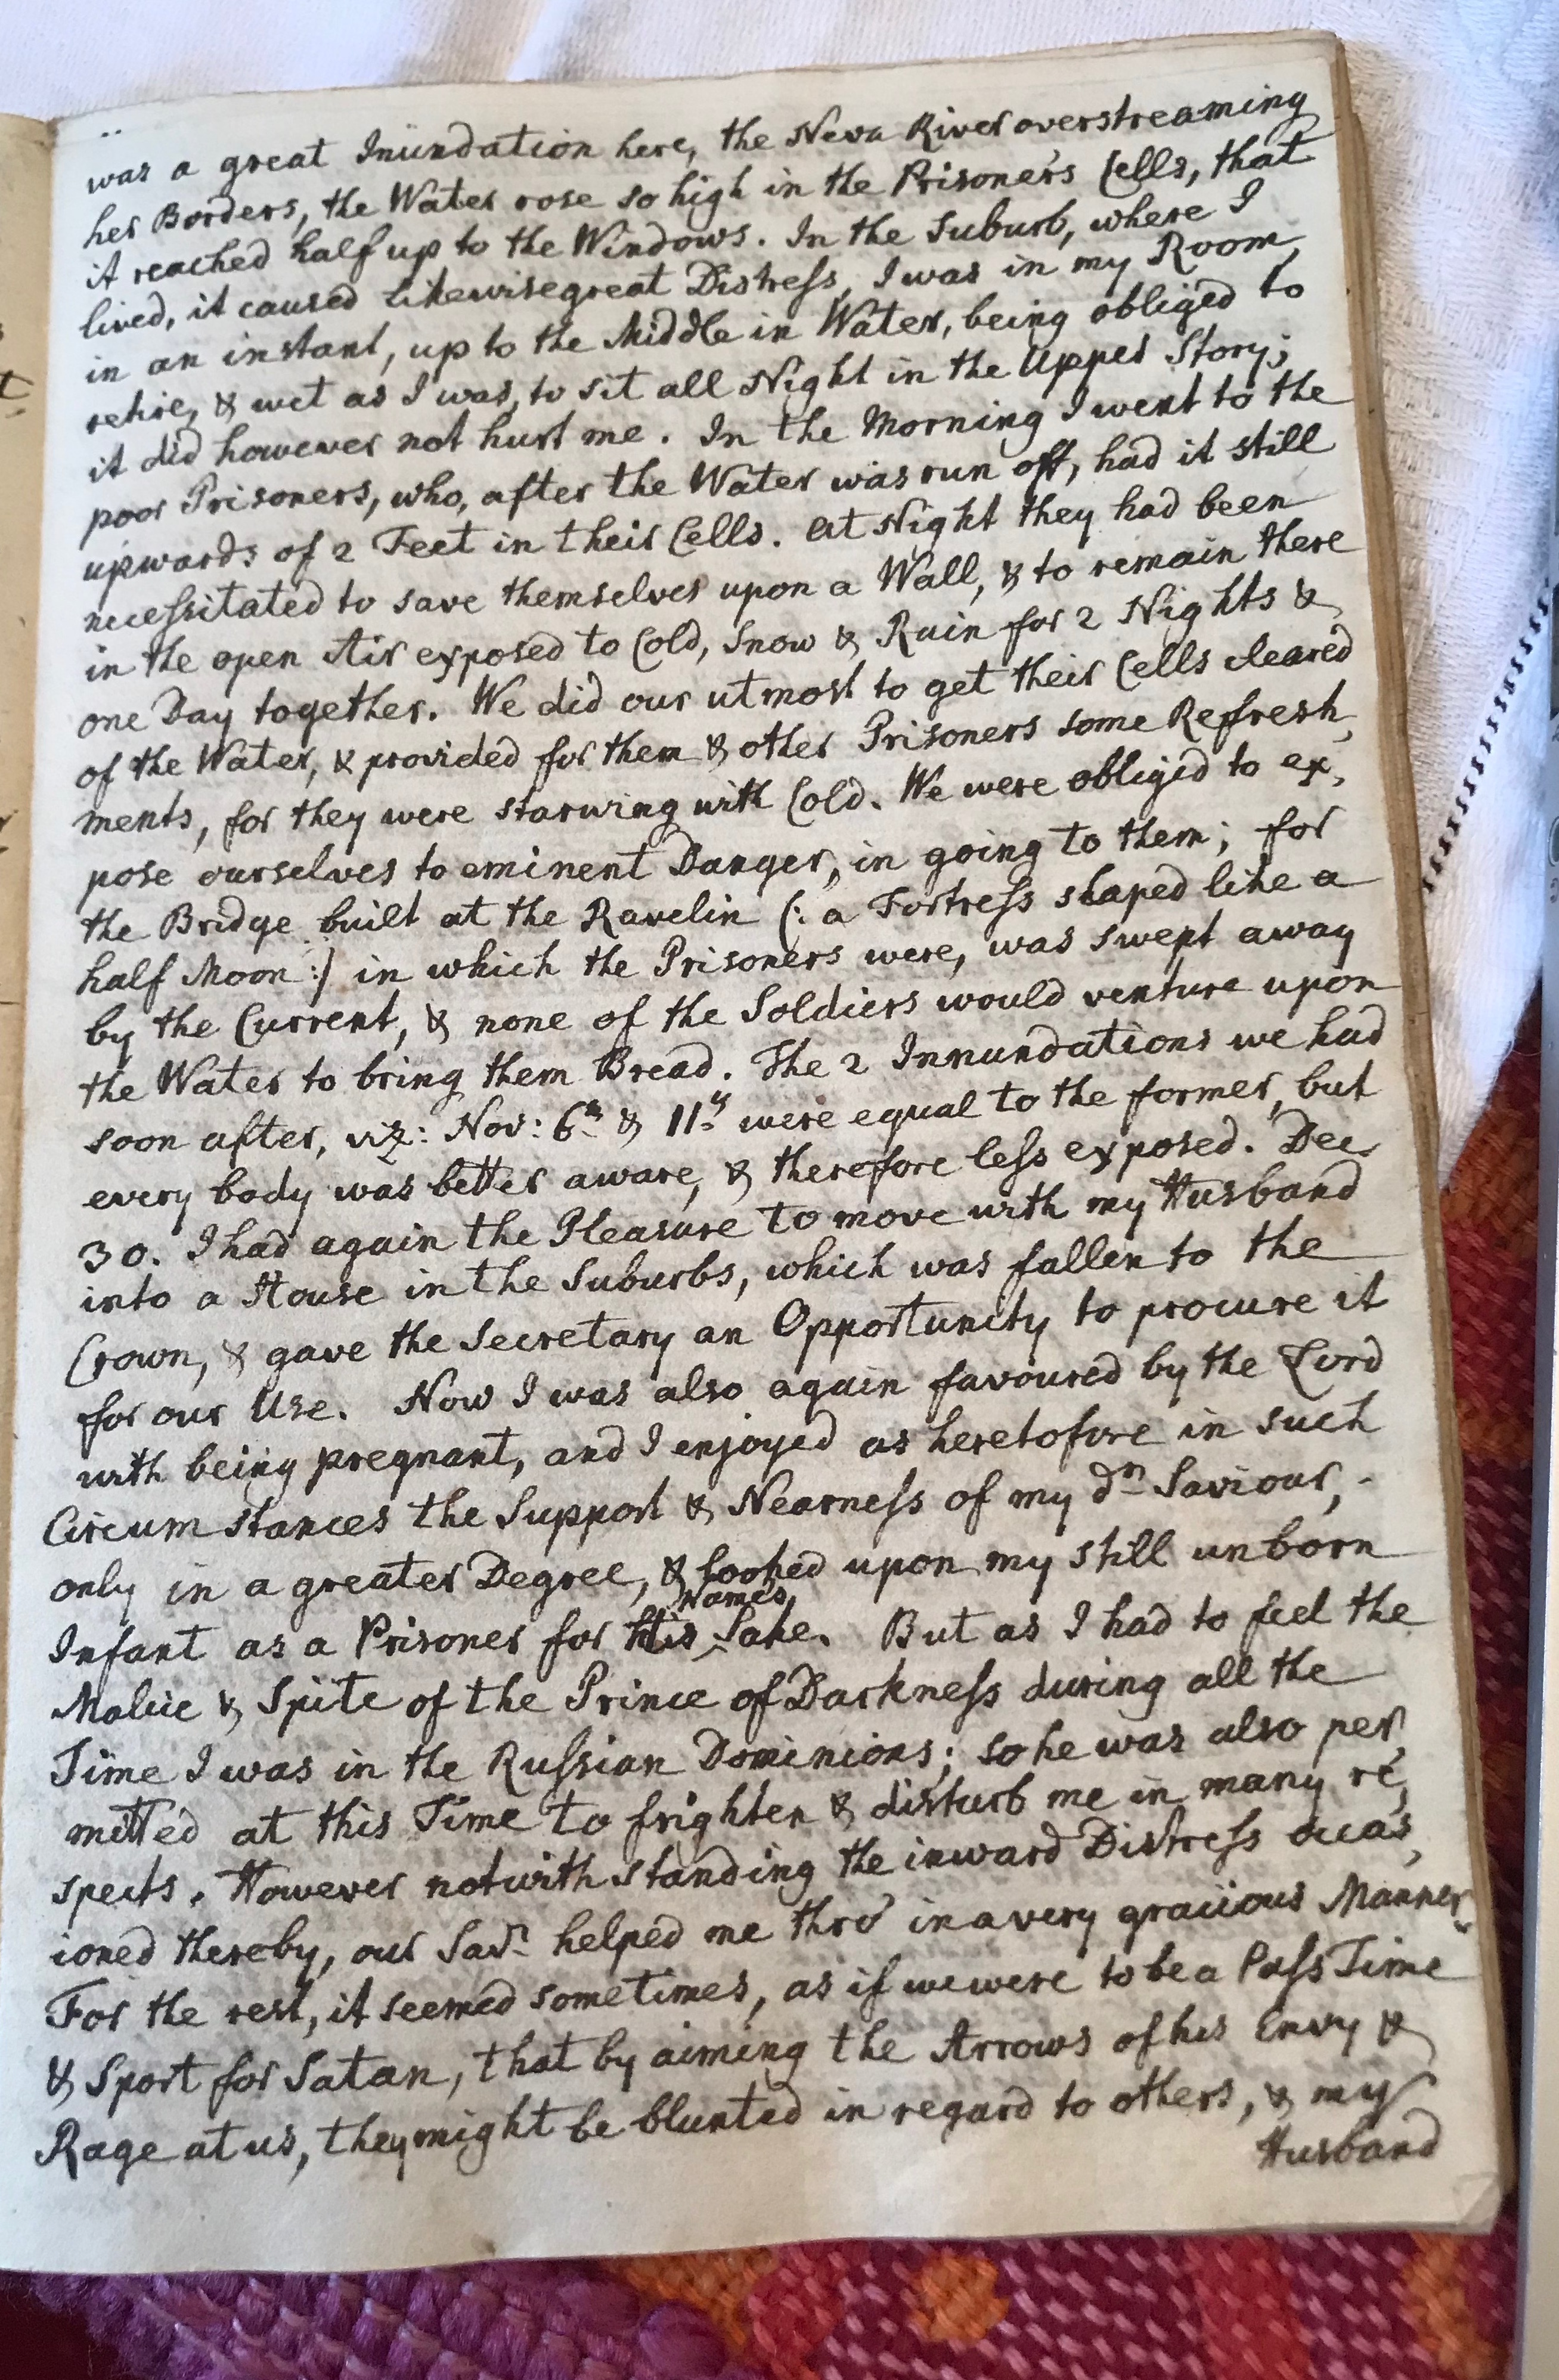 was a great Inundation here, the Neva River overstreaming
her Borders, the Water rose so high in the Prisoner's Cells, that
it reached half up to the Windows. In the Suburb, where I
lived, it caused likewise great Distress, I was in my Room,
in an instant, up to the Middle in Water, being obliged to
retire, & wet as I was, to sit all Night in the Upper Story;
it did however not hurt me. In the Morning I went to the
poor Prisoners, who, after the Water was run off, had it still
upwards of 2 Feet in their Cells. At Night they had been
necessitated to save themselves upon a Wall, & to remain there
in the open Air exposed to Cold, Snow & Rain for 2 Nights &
one Day together. We did our utmost to get their Cells cleared
of the Water, & provided for them & other Prisoners some Refresh,
ments, for they were starwing with Cold. We were obliged to ex,
pose ourselves to eminent Danger, in going to them; for
the Bridge built at the Ravelin (: a Fortress shaped like a
half Moon :) in which the Prisoners were, was swept away
by the Current, & none of the Soldiers would venture upon
the Water to bring them Bread. The 2 Innundations we had
soon after, viz: Nov: 6th & 11th were equal to the former, but
every body was better aware, & therefore less exposed. Dec.
30. I had again the Pleasure to move with my Husband
into a House in the Suburbs, which was fallen to the
Crown, & gave the Secretary an Opportunity to procure it
for our Use. Now I was also again favoured by the Lord
with being pregnant, and I enjoyed as heretofore in such
Circumstances the Support & Nearness of my dr Saviour, -
only in a greater Degree, & looked upon my still unborn
Infant as a Prisoner for His Name's Sake. But as I had to feel the
Malice & Spite of the Prince of Darkness during all the
Time I was in the Russian Dominions; so he was also per,
mitted at this Time to frighten & disturb me in many re,
spects. However notwithstanding the inward Distress occas,
ioned thereby, our Savr helped me thro' in a very gracious Manner.
For the rest, it seemed sometimes, as if we were to be a Pass Time
& Sport for Satan, that by aiming the Arrows of his Envy &
Rage at us, they might be blunted in regard to others, & my
Husband